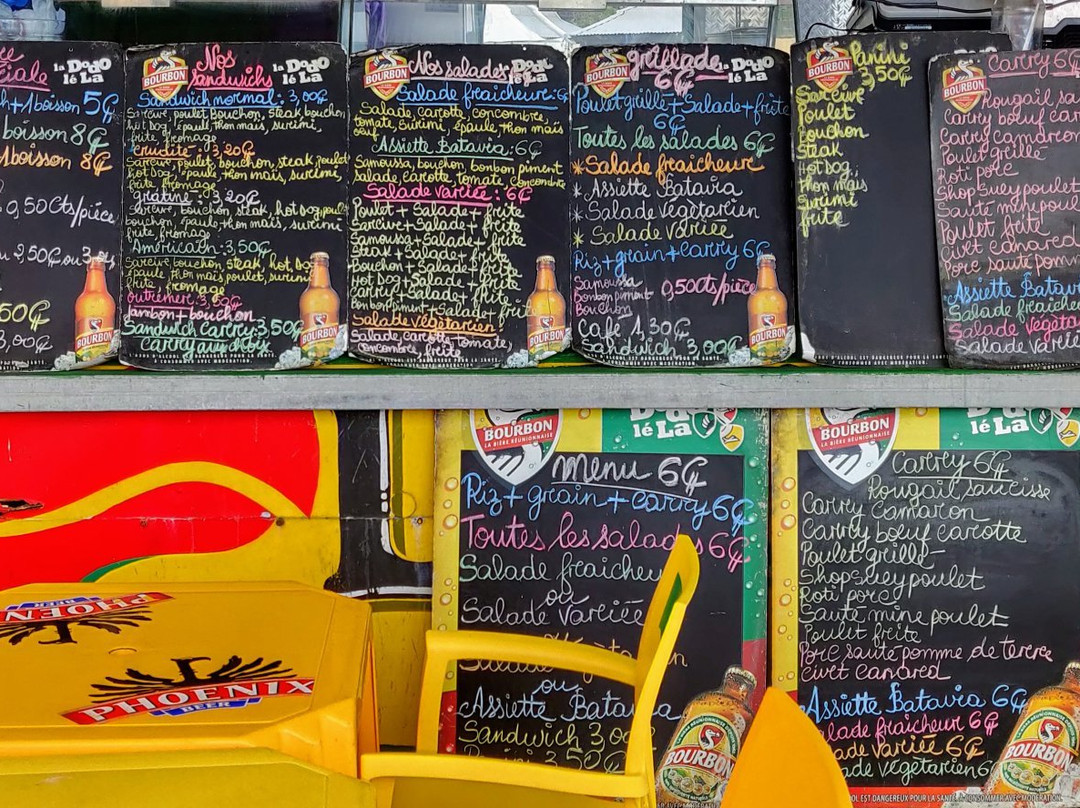 la Dodo
lé La
5€
boisson 8€
boisson 8€
0,50Cts/pièce
3,00€
BOURBON
BOURBON
Nos
sandwichs
la Dodo
lé La
Sandwich normal: 3,00€
hot dog, épaule, thon mais, surimi,
frite, fromage
Crudité: 3,20€
frite fromage
gratiné: 3,20€
frite, fromage
Américain: 3,50€
frite, fromage
outremer: 3,50€
Jambon + bouchon
Sandwich Carry: 3,50€
BOURBON
BOURBON
Nos salades
Salade fraicheur: 6
Salade, carotte, concombre,
tomate, surimi, épaule, thon mais
oeuf
Assiette Batavia: 6€
Samoussa, bouchon bonbon piment
Salade, carotte, tomate, concombre
Salade Variée: 6€
Poulet + Salade + frite
Sarcive + Salade + frite
Samoussa + Salade + frite
Steak + Salade + frite
Bouchon + Salade + frite
Hot Dog + Salade + frite
Carry + Salade + frite
Bonbon piment + Salade + frite
Salade Végétarien
Salade, carotte, tomate,
Concombre, frite
BOURBON
BOURBON
grillade
6€
la Dodo
lé La
Poulet grillé + Salade + frite
6€
Toutes les salades 6€
*Salade fraicheur
*Assiette Batavia
*Salade végétarien
*Salade Variée
Riz + grain + carry 6€
Samoussa
Bonbon piment 0,50cts/pièce
Bouchon
Café 1,30€
Sandwich 3,00€
BOURBON
BOURBON
Panini
3,50€
Sarcive
Poulet
Bouchon
Steak
Hot dog,
thon mais
Surimi
frite
BOURBON
Carry 6€
Rougail sa
Carry boeuf car
Carry camaron
Poulet grillé
Roti porc
Shop suey poulet
Sauté mine poul
Poulet frite
Civet canard
Porc sauté pomm
Assiette Batav
Salade fraicheu
Salade végéta
Salade Varié
BOURBON
LA BIÈRE RÉUNIONNAISE
lé La
Menu 6€
Riz + grain + carry 6€
Toutes les salades 6€
Salade fraicheu
ou
Salade Variée
ou
Assiette Batavia
Sandwich 3,00
3,50€
BOURBON
BOURBON
LA BIÈRE RÉUNIONNAISE
lé La
Carry 6€
Rougail saucisse
Carry Camaron
Carry boeuf carotte
Poulet grillé
Shop suey poulet
Roti porc
Sauté mine poulet
Poulet frite
Porc sauté pomme de terere
Civet canard
Assiette Batavia 6€
alade fraicheur 6€
ade Variée 6€
ade végétarien 6
BOURBON
OL EST DANGEREUX POUR LA SANTÉ, A CONSOMMER AVEC MODÉRATION
PHOENIX
BEER
PHOENIX
BEER